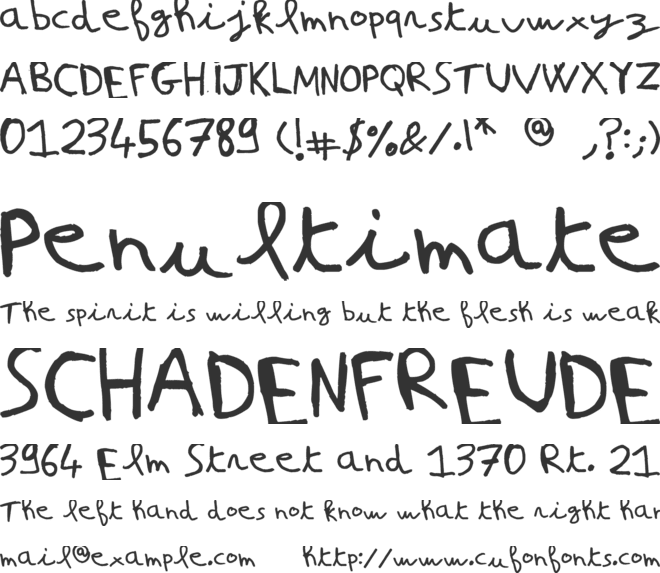 abcdefghijklmnopqrstuvwxyz
ABCDEFGHIJKLMNOPQRSTUVWXYZ
0123456789 (!#$%&/.\* @ ,?:;)
Penultimate
The spirit is willing but the flesh is weak
SCHADENFREUDE
3964 Elm Street and 1370 Rt. 21
The left hand does not know what the right har
mail@example.com http://www.cufonfonts.com